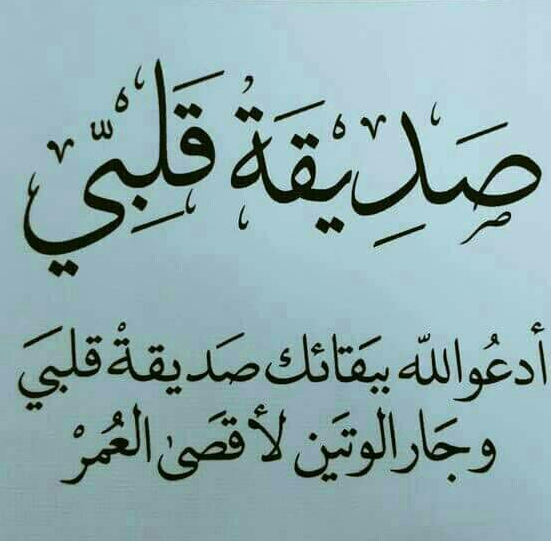 صَدِيقَةُ قَلبِيّ
أدعُو اللّه ببَقائك صَديقةْ قلبَي
وجَار الوتَين لأقصَىٰ العُمرْ